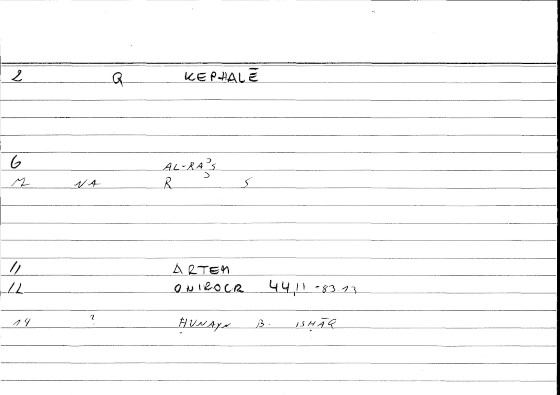 2 Q KEPHALĒ
6 AL-RAʾS
M NA R ʾ S
11 ARTEM
12 ONIROCR 44,11 - 83 13
14 ? ḤUNAYN B. ISḤĀQ